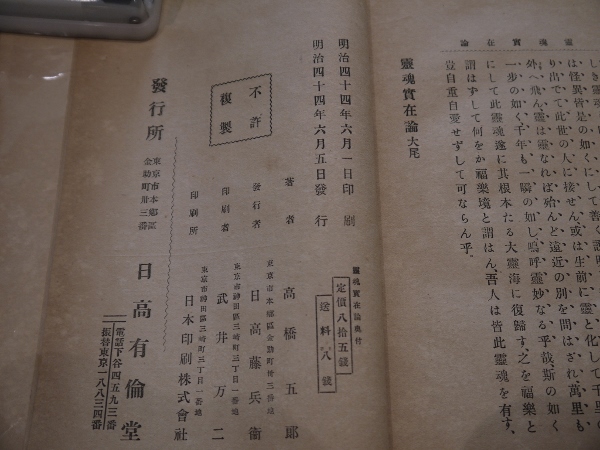 靈魂實在論
しき靈魂
は、怪異皆是の如くにして善く
り出でて此世の人に接せん、或は生前に靈と化して千里の
外へ飛ん、靈は靈なれば殆んど遠近の別を問はざれ、萬里も
一步の如く、千年も一瞬の如し、嗚呼靈妙なる乎哉、斯の如く
にして此靈魂遂に其根本たる大靈海に復歸す、之を福樂と
謂はずして何をか福樂境と謂はん、吾人は皆此靈魂を有す、
豈自重自愛せずして可ならん乎。
靈魂實在論 大尾
靈魂實在論奧付
定價八拾五錢
送料八錢
明治四十四年六月一日印刷
明治四十四年六月五日發行
不許
複製
著者 高橋五郎
東京市本鄕區金助町卅三番地
發行者 日高藤兵衞
東京市神田區三崎町三丁目一番地
印刷者 武井万二
東京市神田區三崎町三丁目一番地
印刷所 日本印刷株式會社
發行所
東京市本鄕區
金助町卅三番
日高有倫堂
電話下谷四五九三番
振替東京一八八三四番